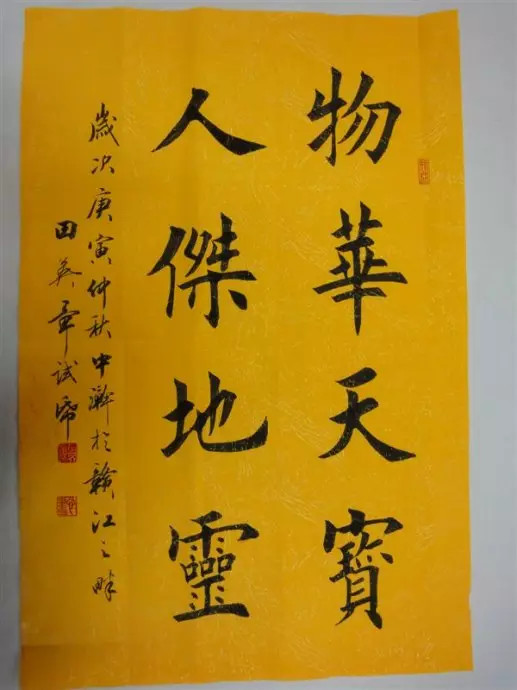 物華天寶
人傑地靈
歲次庚寅仲秋中澣於贛江之畔
田英章試筆